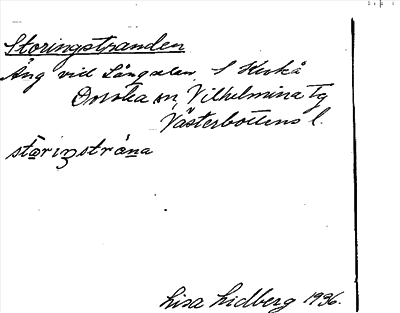 Storingstranden
Äng vid Långselen, S Kvikå
Dorotea sn, Vilhelmina tg
Västerbottens l.
storiŋstrána
Lisa Lidberg 1936.